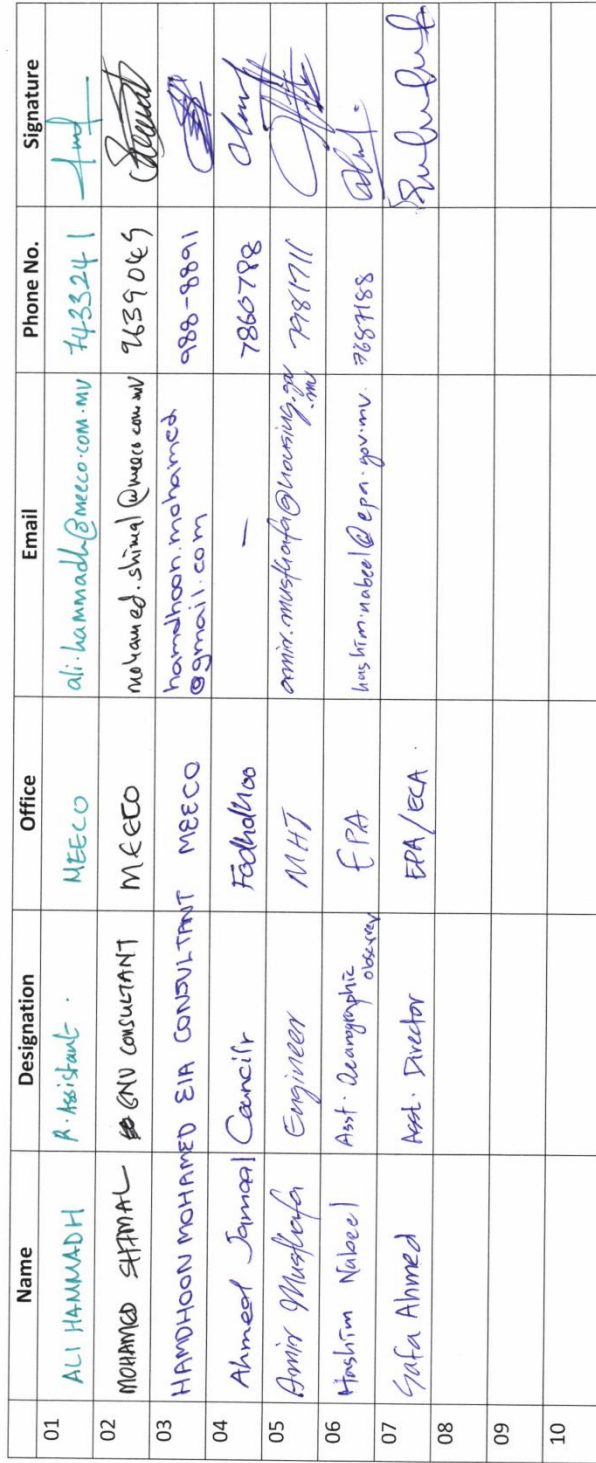 Name Designation Office Email Phone No. Signature
01 ALI HAMMADH R. Assistant. MEECO ali.hammadh@meeco.com.mv 7433241
02 MOHAMED SHIMAL ENV CONSULTANT MEECO mohamed.shimal@meeco.com.mv 9639049
03 HAMDHOON MOHAMED EIA CONSULTANT MEECO hamdhoon.mohamed
@gmail.com 988-8891
04 Ahmeel Jamaal Councilr Fodhdhoo — 7860788
05 Amir Musthafa Engineer MHI amir.musthafa@housing.gov
.mv 7981711
06 Hashim Nabeel Asst. Oceanographic
observer EPA hashim.nabeel@epa.gov.mv. 7687188
07 Safa Ahmed Asst. Director EPA/ECA.
08
09
10